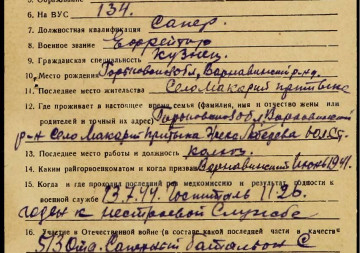 6. На ВУС 134.
7. Должностная квалификация сапер.
8. Военное звание Ефрейтор
9. Гражданская специальность кузнец.
10. Место рождения Горьковской обл, Варнавинский р-нд.
11. Последнее место жительства Село Макарий притыкино
12. Где проживает в настоящее время семья (фамилия, имя и отчество жены или
родителей и точный их адрес) Горьковской обл Варнавинский
р-н село Макарий Притыка Лебедева
13. Последнее место работы и должность колхоз
14. Каким райгорвоенкоматом и когда призван Варнавинский июнь 1941
15. Когда и где проходил последний раз медкомиссию и результат годности к
военной службе 13.7.44. Госпиталь 1126.
годен к нестроевой службе
16. Участие в Отечественной войне (в составе какой последней части и в качестве
513 Отд. Саперный батальон с